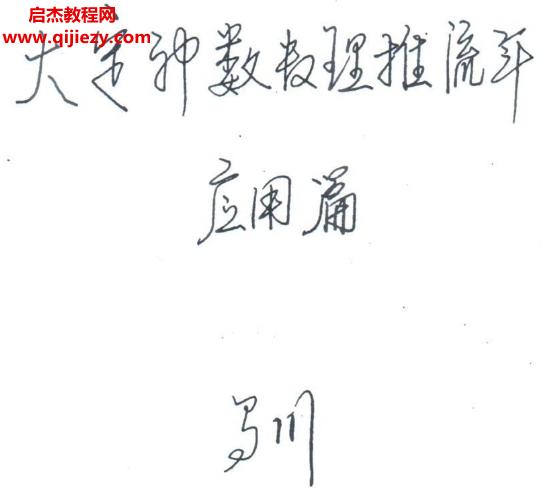 启杰教程网
www.qijiezy.com
大定神数数理推流年
应用篇
易川